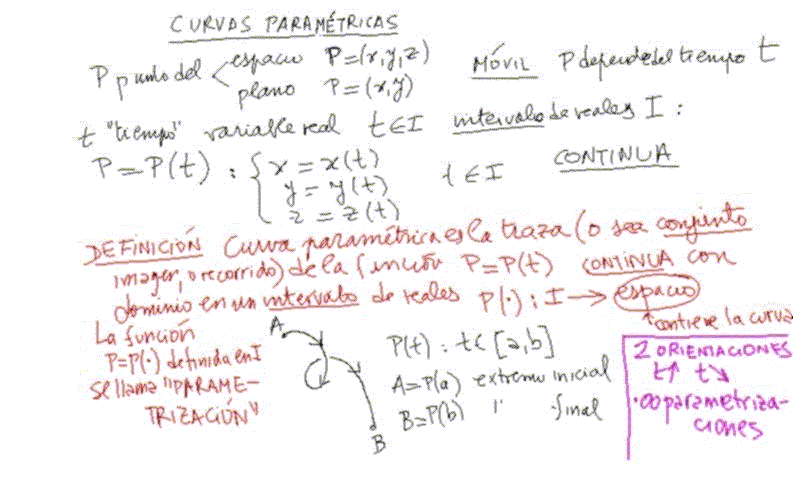 CURVAS PARAMÉTRICAS
P punto del espacio P=(x,y,z)
plano P=(x,y)
MÓVIL P depende del tiempo t
t "tiempo" variable real t∈I intervalo de reales I :
P=P(t) : { x = x(t)
y = y(t)
z = z(t)
t ∈ I CONTINUA
DEFINICIÓN Curva paramétrica es la traza (o sea conjunto
imagen, o recorrido) de la función P=P(t) CONTINUA con
dominio en un intervalo de reales P(·) : I → espacio
↑contiene la curva
La función
P=P(·) definida en I
se llama "PARAME-
TRIZACIÓN"
A
B
P(t) : t∈ [a,b]
A=P(a) extremo inicial
B=P(b) " final
2 ORIENTACIONES
t↑ t↘
·∞ parametriza-
ciones